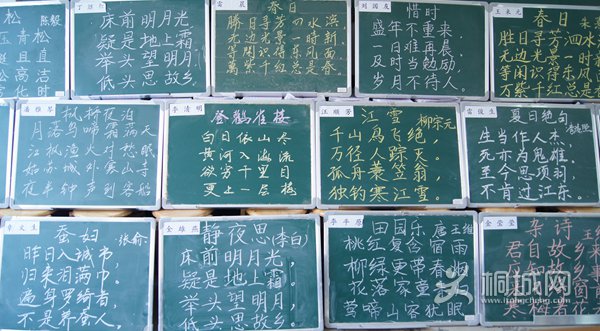 松 陈毅
青松
且直
高洁
化时
床前明月光
疑是地上霜
举头望明月
低头思故乡
雷晨
春日
胜日寻芳水滨
无边光景一时新
等闲识得东风面
万紫千红总是春
刘国友
惜时
盛年不重来
一日难再晨
及时当勉励
岁月不待人
王来元
春日 朱
胜日寻芳泗水
无边光景一时
等闲识得东风
万紫千红总是
潘雅琴
枫桥夜泊
月落乌啼霜满天
江枫渔火对愁眠
姑苏城外寒山寺
夜半钟声到客船
李清明
登鹳雀楼
白日依山尽
黄河入海流
欲穷千里目
更上一层楼
汪顺芳
江雪 柳宗元
千山鸟飞绝,
万径人踪灭。
孤舟蓑笠翁,
独钓寒江雪。
雷俊生
夏日绝句 李清照
生当作人杰,
死亦为鬼雄。
至今思项羽,
不肯过江东。
章文生
蚕妇 张俞
昨日入城市,
归来泪满巾。
遍身罗绮者,
不是养蚕人。
金雄燕
静夜思(李白)
床前明月光,
疑是地上霜。
举头望明月,
低头思故乡。
李平原
田园乐 唐 王维
桃红复含宿雨
柳绿更带春烟
花落家童
莺啼山客犹眠
金莹莹
杂诗 王
君自故乡
桐城网